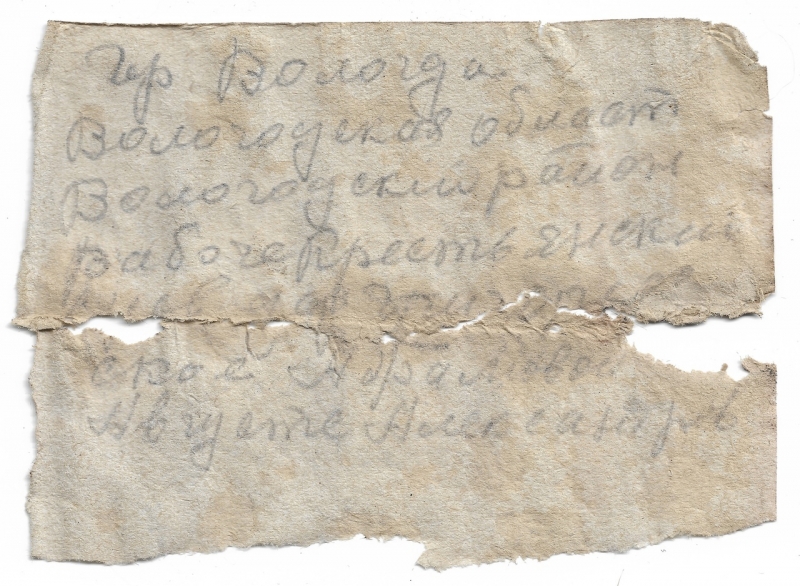 Гор. Вологда
Вологодская област
Вологодский район
Рабочекрестьянский
ское Абрамовой
Августе Александров